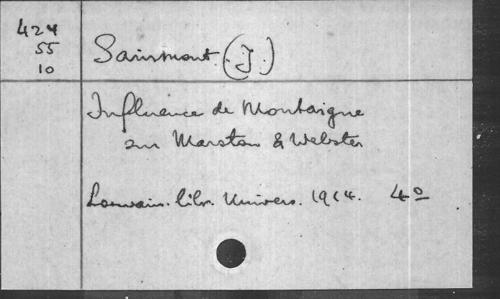 424
55
10
Sainmont (J.)
Influence de Montaigne
sur Marston & Webster
Louvain. libr. Univers. 1914. 4º